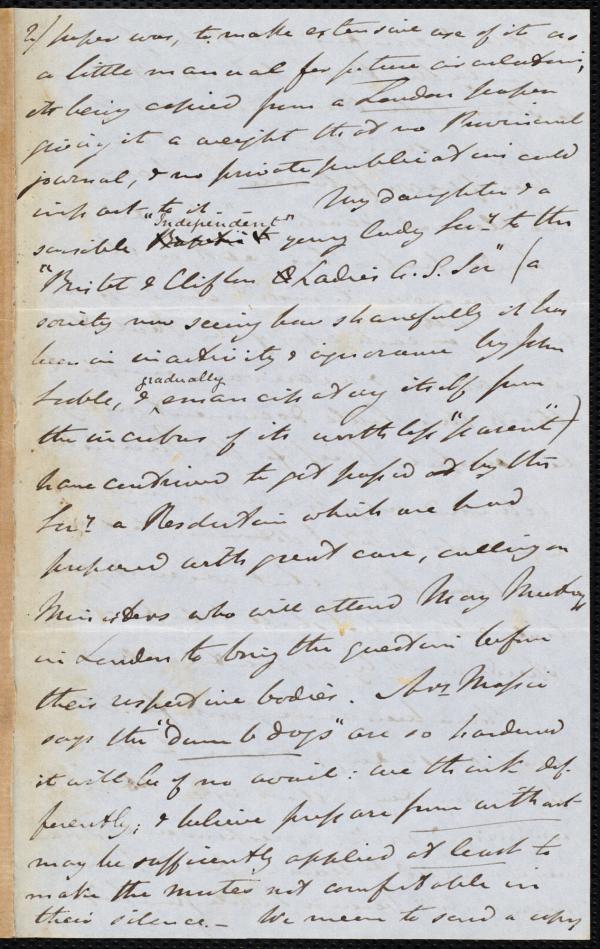 2/ paper was, to make extensive use of it as
a little manual for future circulation;
its being copied from a London paper
giving it a weight that no Provincial
journal, & no private publication could
impart to it. My daughter & a
sensible "Independent" young lady Secy. to the
"Bristol & Clifton Ladies A. S. Soc" (a
society now seeing how shamefully it has
been in inactivity & ignorance by John
Scoble, & gradually emancipating itself from
the incubus of its worthless "parent")
have contrived to get passed at by this
Socy. a Resolution which we had
prepared with great care, calling on
Ministers who will attend May Meetings
in London to bring the question before
their respective bodies. Mrs. Massie
says the "dumb dogs" are so hardened
it will be of no avail: we think dif-
ferently; & believe pressure from without
may be sufficiently applied at least to
make the mutes not comfortable in
their silence. — We mean to send a copy